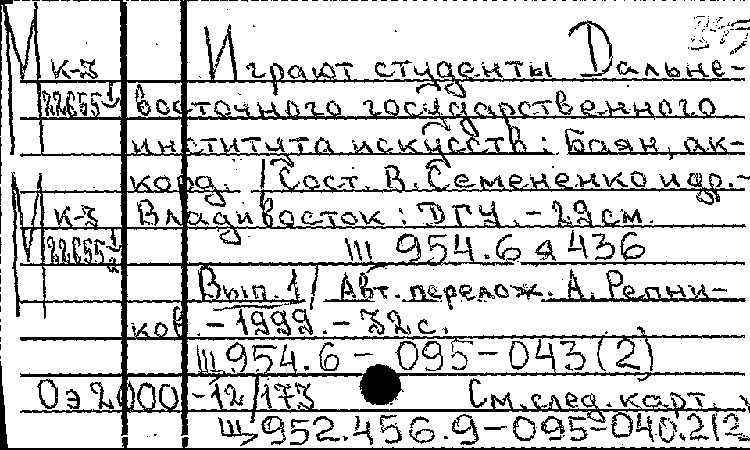 М Играют студенты Дальне-
к-3
22655 1/1 восточного государственного
института искусств: Баян, ак-
корд. / Сост. В. Семененко и др. -
М к-3 Владивосток: ДГУ. - 29 см.
Щ 954.6 я 436
Вып. 1 / Авт. перелож. А. Репни-
ков. - 1999. - 32 с.
Щ 954.6 - 095 - 043 (2)
Оэ 2000 - 12/173 См. след. карт.
Щ 952.456.9 - 095 - 040.2